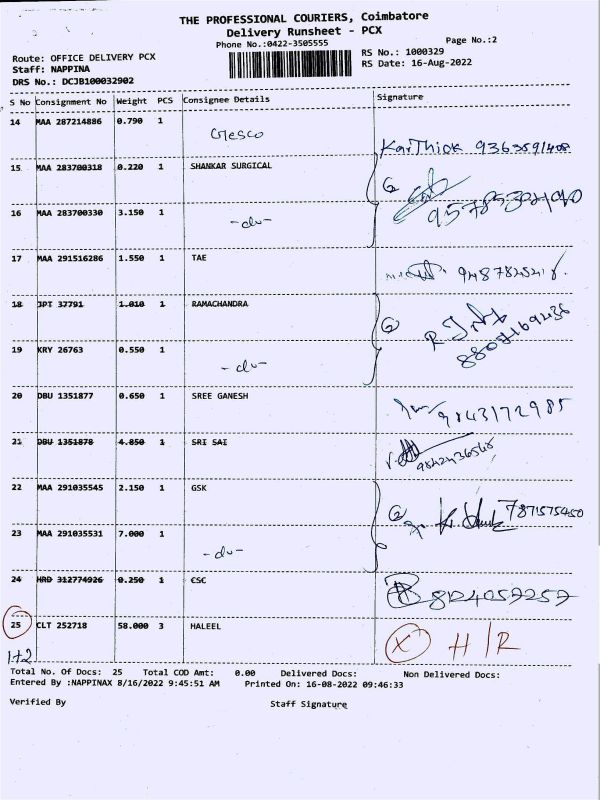 THE PROFESSIONAL COURIERS, Coimbatore
Delivery Runsheet - PCX
Phone No.:0422-3505555
Page No.:2
Route: OFFICE DELIVERY PCX
RS No.: 1000329
Staff: NAPPINA
RS Date: 16-Aug-2022
DRS No.: DCJB100032902
S No Consignment No Weight PCS Consignee Details Signature
14 MAA 287214886 0.790 1
Cresco
Karthick 9363591408
15 MAA 283700318 0.220 1 SHANKAR SURGICAL
16 MAA 283700330 3.150 1
-do-
17 MAA 291516286 1.550 1 TAE
18 JPT 37791 1.010 1 RAMACHANDRA
8807169436
19 KRY 26763 0.550 1
-do-
20 DBU 1351877 0.650 1 SREE GANESH
9843172985
21 DBU 1351878 4.850 1 SRI SAI
9842436568
22 MAA 291035545 2.150 1 GSK
7871575450
23 MAA 291035531 7.000 1
-do-
24 HRD 312774926 0.250 1 CSC
8124057257
25 CLT 252718 58.000 3 HALEEL
X H/R
1+2
Total No. Of Docs: 25 Total COD Amt: 0.00 Delivered Docs: Non Delivered Docs:
Entered By :NAPPINAX 8/16/2022 9:45:51 AM Printed On: 16-08-2022 09:46:33
Verified By Staff Signature